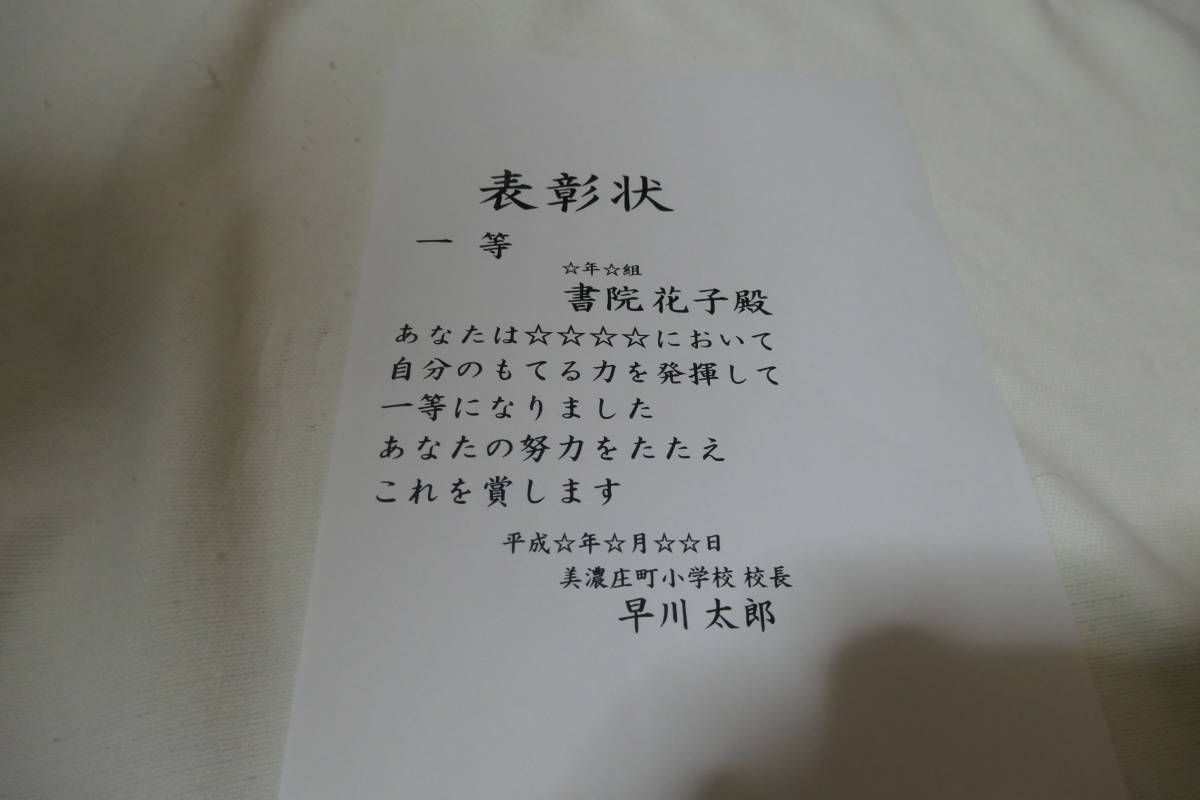 表彰状
一等
☆年☆組
書院 花子殿
あなたは☆☆☆☆において
自分のもてる力を発揮して
一等になりました
あなたの努力をたたえ
これを賞します
平成☆年☆月☆☆日
美濃庄町小学校 校長
早川 太郎